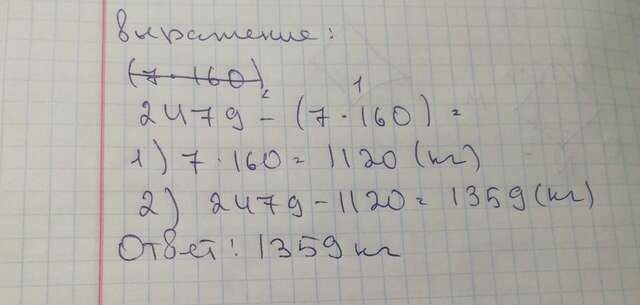 выражение:
(7 · 160)
2 1
2479 - (7 · 160) =
1) 7 · 160 = 1120 (кг)
2) 2479 - 1120 = 1359 (кг)
Ответ: 1359 кг